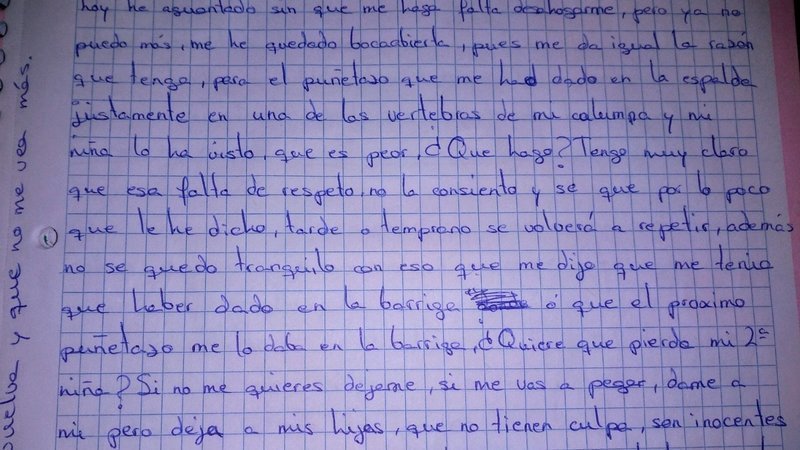 hoy he aguantado sin que me haga falta desahogarme, pero ya no
puedo más, me he quedado bocabierta, pues me da igual la razón
que tenga, pero el puñetazo que me had dado en la espalda
justamente en una de las vertebras de mi calumpa y mi
niña lo ha visto, que es peor, ¿Que hago? Tengo muy claro
que esa falta de respeto, no la consiento y se que por lo poco
que le he dicho, tarde o temprano se volverá a repetir, además
no se quedo tranquilo con eso que me dijo que me tenia
que haber dado en la barriga ó que el proximo
puñetazo me lo daba en la barriga, ¿Quiere que pierda mi 2ª
niña? Si no me quieres dejame, si me vas a pegar, dame a
mi pero deja a mis hijas, que no tienen culpa, son inocentes
vuelva y que no me vea más.
1